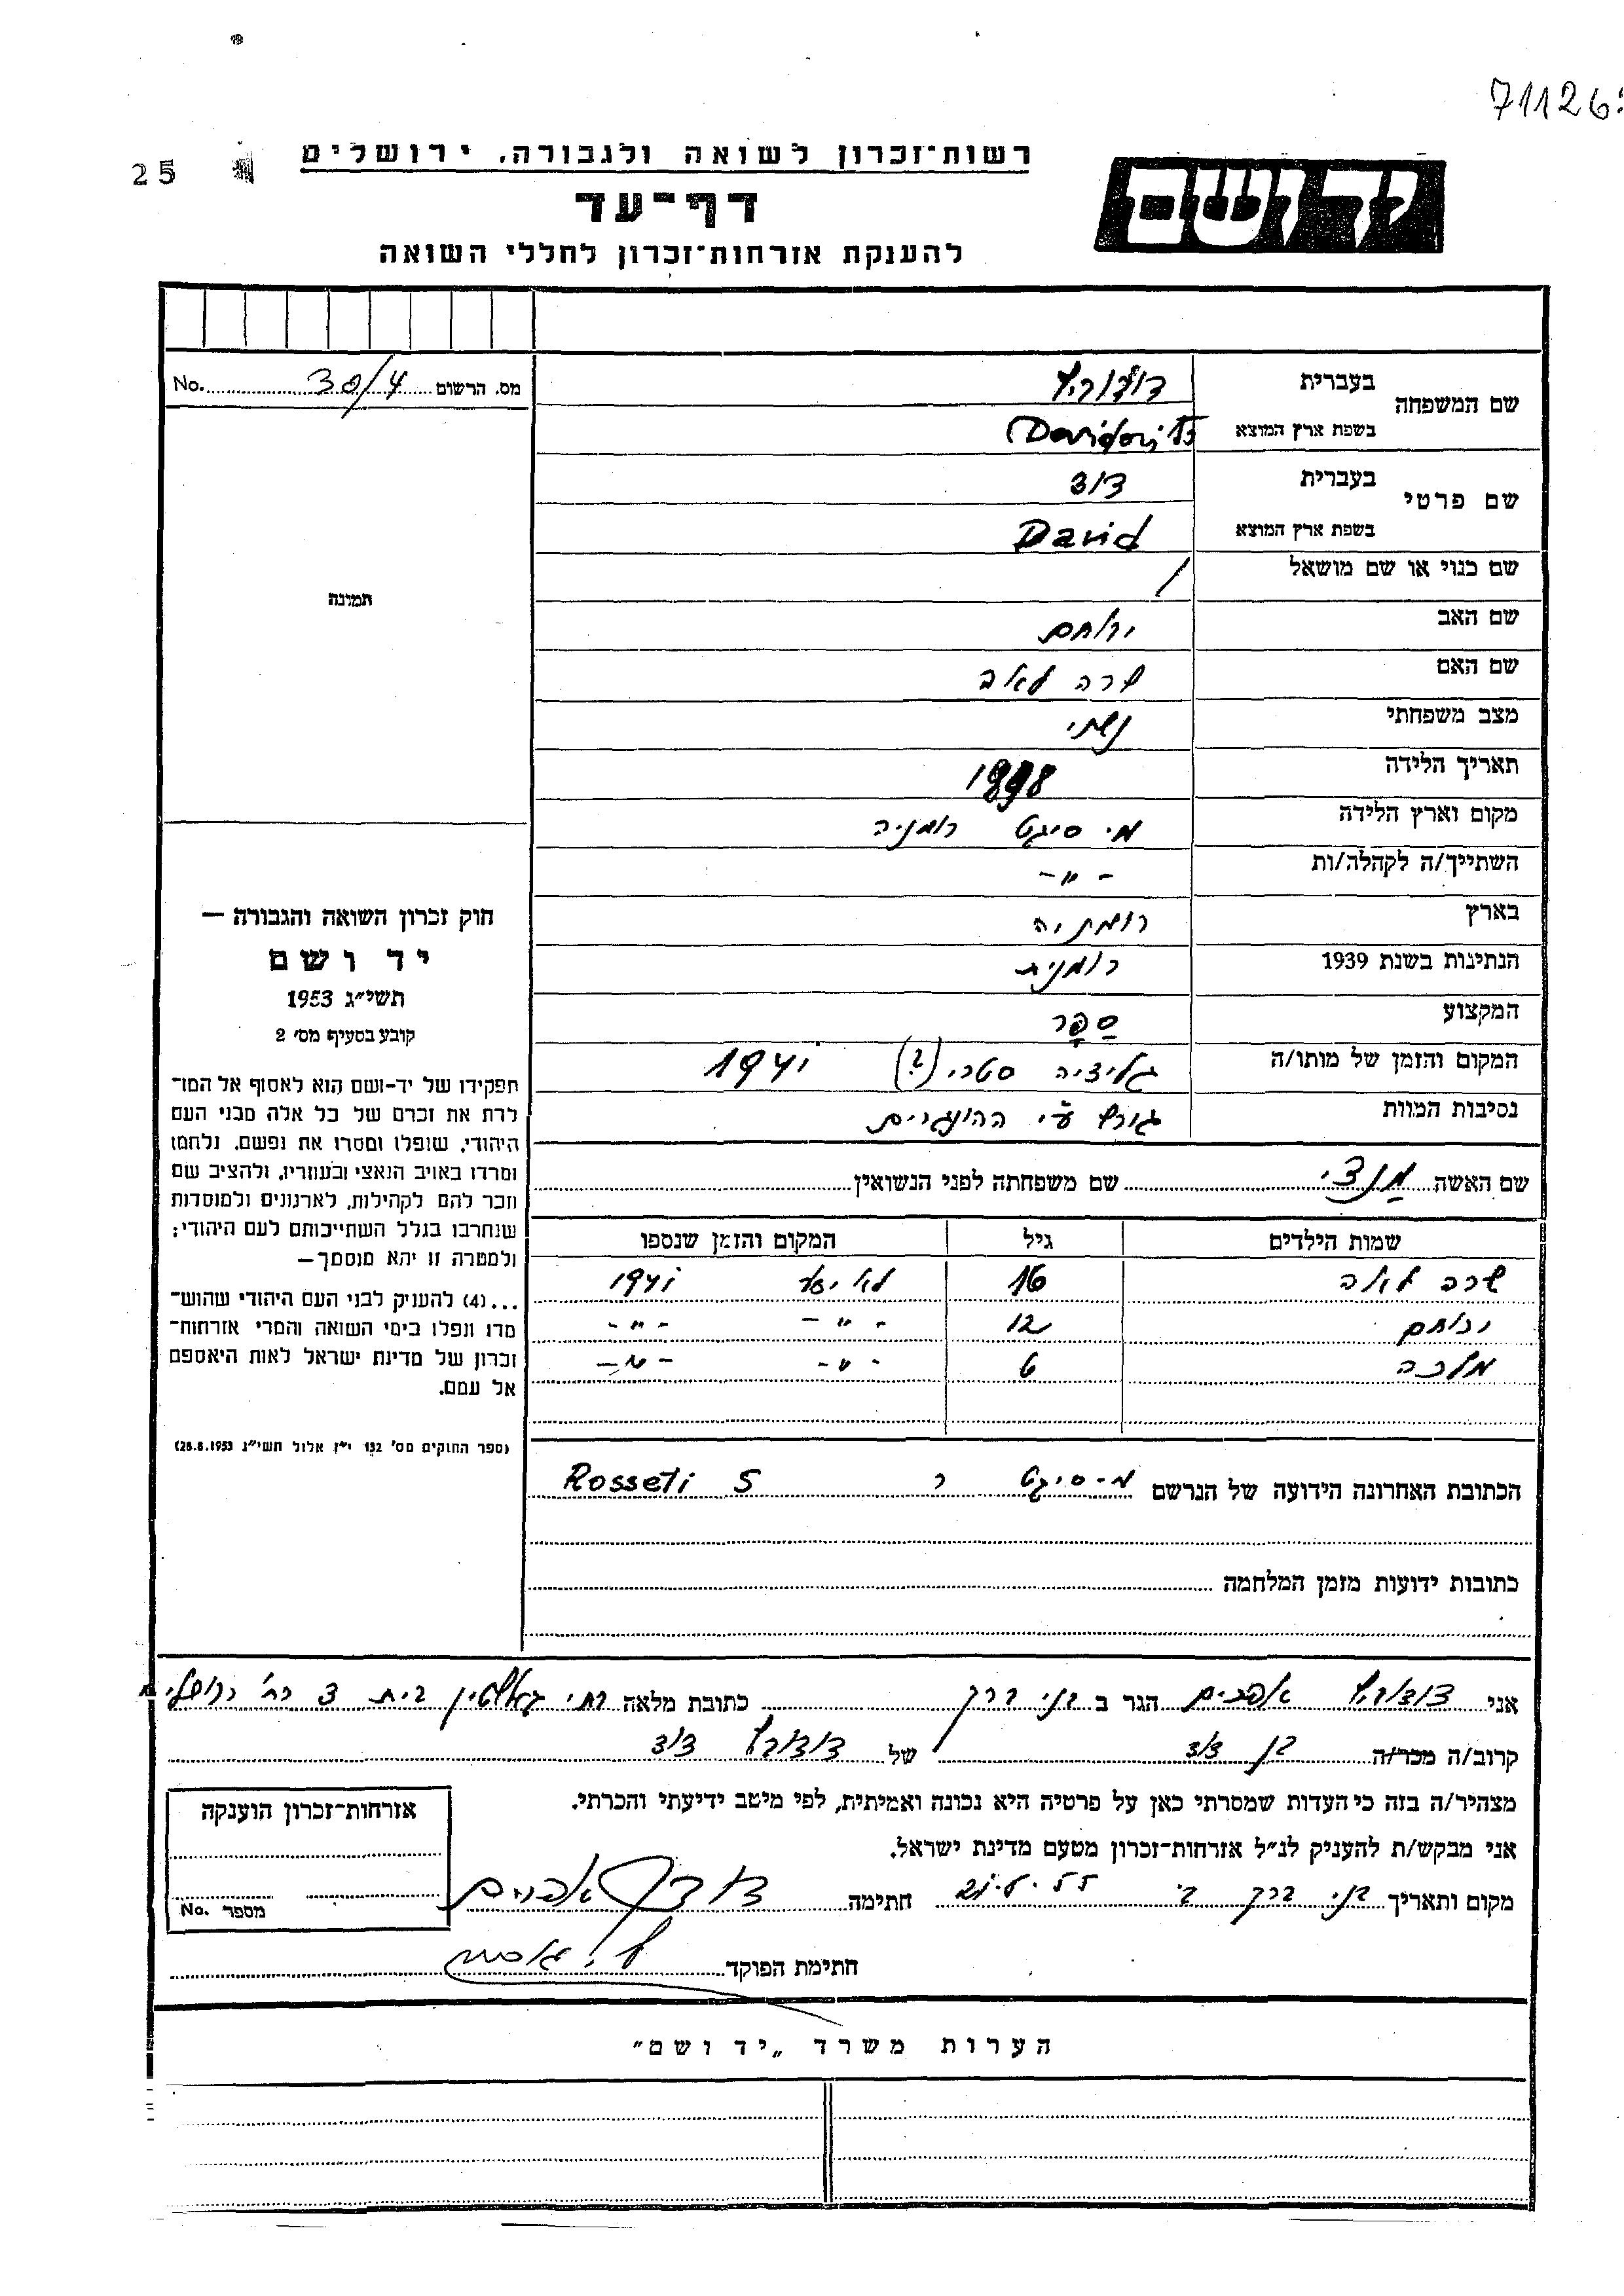 71126
25
רשות־זכרון לשואה ולגבורה, ירושלים
יד ושם
דף־עד
להענקת אזרחות־זכרון לחללי השואה
מס. הרשום 30/4 No.
שם המשפחה בעברית דודוביץ
בשפת ארץ המוצא Davidovits
שם פרטי בעברית דוד
בשפת ארץ המוצא David
שם כנוי או שם מושאל /
שם האב ירוחם
שם האם שרה לאה
מצב משפחתי נשוי
תאריך הלידה 1898
מקום וארץ הלידה מ. סיגט רומניה
השתייך/ה לקהלה/ות - " -
בארץ רומניה
הנתינות בשנת 1939 רומנית
המקצוע סַפָּר
המקום והזמן של מותו/ה גליציה (?) 1941
נסיבות המוות ע"י ההונגרים
תמונה
חוק זכרון השואה והגבורה —
יד ושם
תשי״ג 1953
קובע בסעיף מס׳ 2
תפקידו של יד־ושם הוא לאסוף אל המו־
לדת את זכרם של כל אלה מבני העם
היהודי, שנפלו ומסרו את נפשם, נלחמו
ומרדו באויב הנאצי ובעוזריו, ולהציב שם
וזכר להם לקהילות, לארגונים ולמוסדות
שנחרבו בגלל השתייכותם לעם היהודי;
ולמטרה זו יהא מוסמך—
...(4) להעניק לבני העם היהודי שהוש־
מדו ונפלו בימי השואה והמרי אזרחות־
זכרון של מדינת ישראל לאות היאספם
אל עמם.
(ספר החוקים מס׳ 132 י״ז אלול תשי״ג 28.8.1953)
שם האשה מנצי שם משפחתה לפני הנשואין
שמות הילדים גיל המקום והזמן שנספו
שרה לאה 16 לא ידוע 1941
ירוחם 12 - " - - " -
מלכה 6 - " - - " -
הכתובת האחרונה הידועה של הנרשם מ-סיגט ר Rosseti 5
כתובות ידועות מזמן המלחמה
אני דודוביץ אפרים הגר ב בני ברק כתובת מלאה בית 3
קרוב/ה מכר/ה בן דוד של דודוביץ דוד
מצהיר/ה בזה כי העדות שמסרתי כאן על פרטיה היא נכונה ואמיתית, לפי מיטב ידיעתי והכרתי.
אני מבקש/ת להעניק לנ״ל אזרחות־זכרון מטעם מדינת ישראל.
מקום ותאריך בני ברק חתימה אפרים
חתימת הפוקד
אזרחות־זכרון הוענקה
מספר No.
הערות משרד „יד ושם״